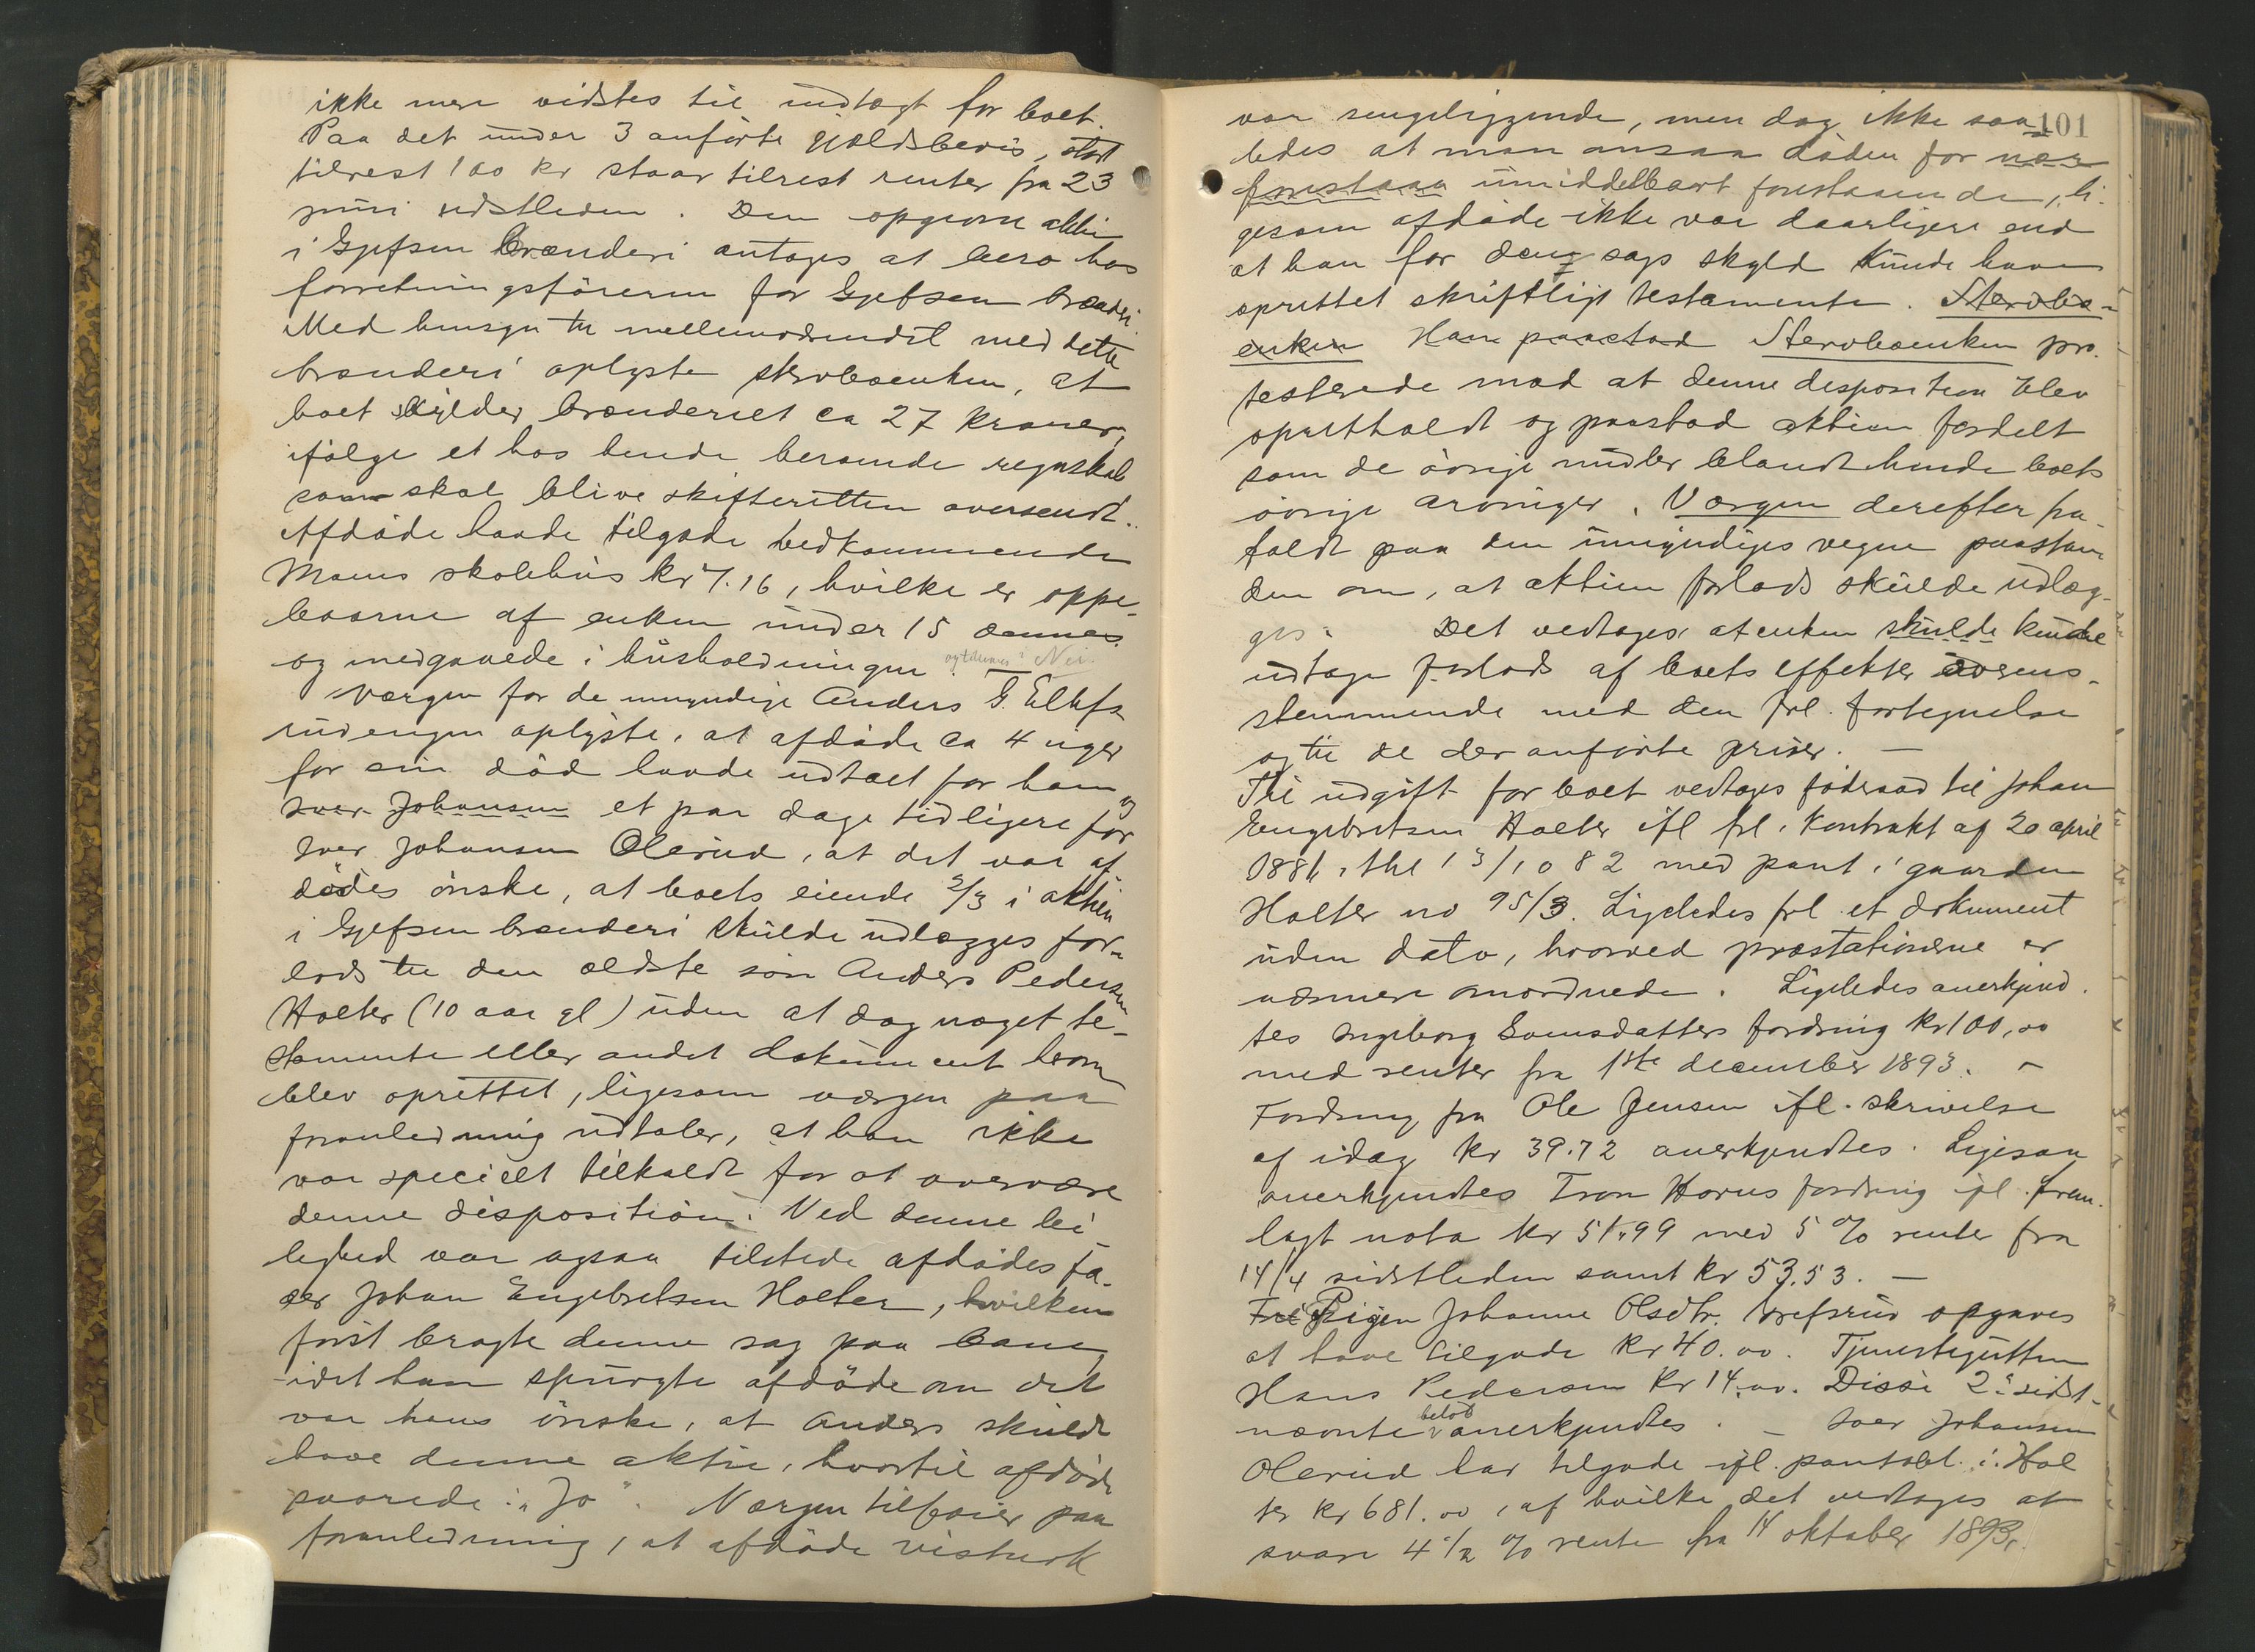 ikke mere vidstes til indtægt for boet.
Paa det under 3 anförte gjældsbevis, stort
tilrest 100 kr staar tilrest renter fra 23
juni sidstleden. Den opgivne aktie
i Gjefsen Brænderi antages at bero hos
forretningsföreren for Gjefsen brænderi.
Med hensyn til mellemværendet med dette
brænderi oplyste stervboenken, at
boet skylder brænderiet ca 27 kroner,
ifölge et hos hende beroende regnskab
som skal blive skifteretten oversendt.
Afdöde havde tilgode vedkommende
Moens skolehus kr 7.16, hvilke er oppe-
baarne af enken under 15 dennes
og medgaaede i husholdningen. Nei.
Værgen for de umyndige Anders G. Ellefs
rudengen oplyste, at afdöde ca 4 uger
før sin död havde udtalt for ham og
Iver Johansen et par dage tidligere for
Iver Johansen Olerud, at det var af-
dödes önske, at boets eiende 2/3 i aktien
i Gjefsen brænderi skulde udlægges for-
lods til den ældste sön Anders Pedersen
Holter (10 aar gl) uden at dog noget te-
stamente eller andet dokument herom
blev oprettet, ligesom værgen paa
foranledning udtaler, at han ikke
var specielt tilkaldt for at overvære
denne disposition. Ved denne lei-
lighed var ogsaa tilstede afdödes fa-
der Johan Engebretsen Holter, hvilken
först bragte denne sag paa bane,
idet han spurgte afdöde om det
var hans önske, at Anders skulde
have denne aktie, hvortil afdöde
svarede: "Ja". Værgen tilföier paa
foranledning, at afdöde vistnok
101
var sengeliggende, men dog ikke saa-
ledes at man ansaa döden for nær
forestaaa umiddelbart forestaaende, li-
gesom afdöde ikke var daarligere end
at han for den sags skyld kunde have
oprettet skriftligt testamente. Stervbo-
enken Han paastod Stervboenken pro-
testerede mod at denne disposition blev
opretholdt og paastod aktien fordelt
som de övrige midler blandt hende boets
övrige arvinger. Værgen derefter fra-
faldt paa den umyndiges vegne paastan-
den om, at aktien forlods skulde udlæg-
ges. Det vedtages, at enken skulde kunde
udtage forlods af boets effekter overens-
stemmende med den frl. fortegnelse
og til de der anförte priser. —
Til udgift for boet vedtages föderaad til Johan
Engebretsen Holter ifl frl. Kontrakt af 20 april
1881, thl 13/10 82 med pant i gaarden
Holter no 95/3. Ligeledes frl et dokument
uden dato, hvorved præstationerne er
nærmere anordnede. Ligeledes anerkjend-
tes Ingeborg Larsdatters fordring kr 100,00
med renter fra 1ste december 1893. —
Fordring fra Ole Jensen ifl. skrivelse
af idag kr 39.72 anerkjendtes. Ligesaa
anerkjendtes Tron Horns fordring ifl. frem-
lagt nota kr 51.99 med 5 % renter fra
14/4 sidstleden samt kr 53.53. —
Pigen Johanne Olsdtr. opgaves
at have tilgode kr 40.00. Tjenestegutten
Hans Pedersen kr 14.00. Disse 2 sidst-
nævnte belöb anerkjendtes. — Iver Johansen
Olerud har tilgode ifl. pantobl. i Hol
ter kr 681.00, af hvilke det vedtages at
svare 4 1/2 % rente fra 14 oktober 1893.